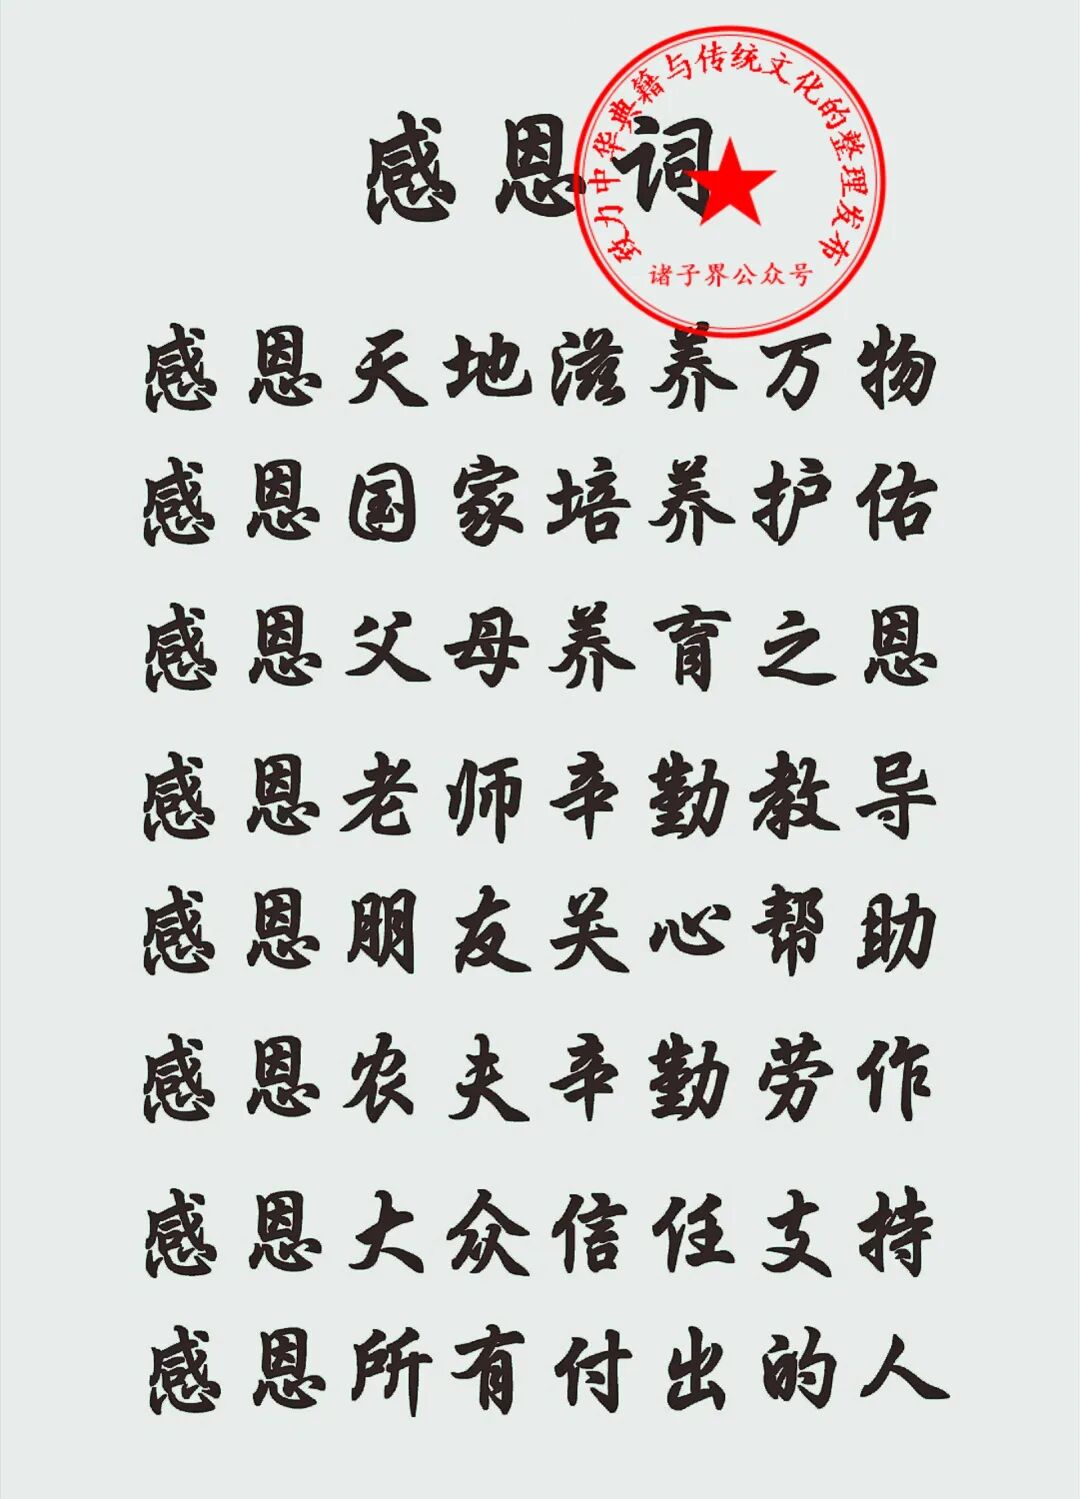 感恩词
致力中华典籍与传统文化的整理发布
诸子界公众号
感恩天地滋养万物
感恩国家培养护佑
感恩父母养育之恩
感恩老师辛勤教导
感恩朋友关心帮助
感恩农夫辛勤劳作
感恩大众信任支持
感恩所有付出的人